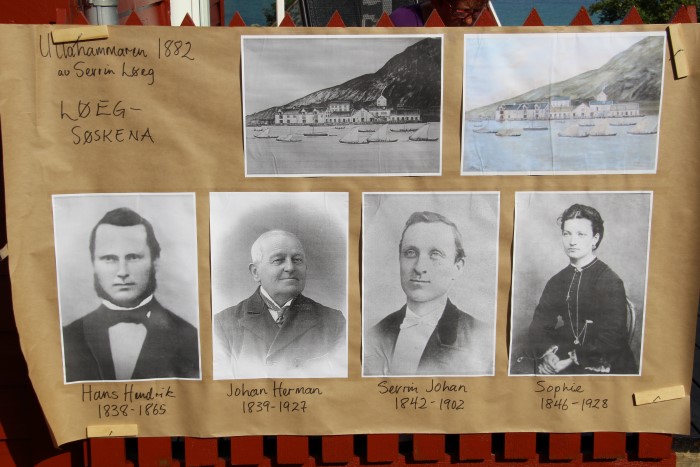 Ullahammaren 1882
av Sevrin Løeg
LØEG-
SØSKENA
Hans Hendrik
1838-1865
Johan Herman
1839-1927
Sevrin Johan
1842-1902
Sophie
1846-1928